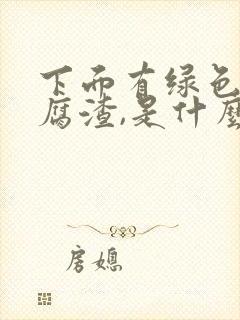 下面有绿色
腐渣,是什麽
房媳